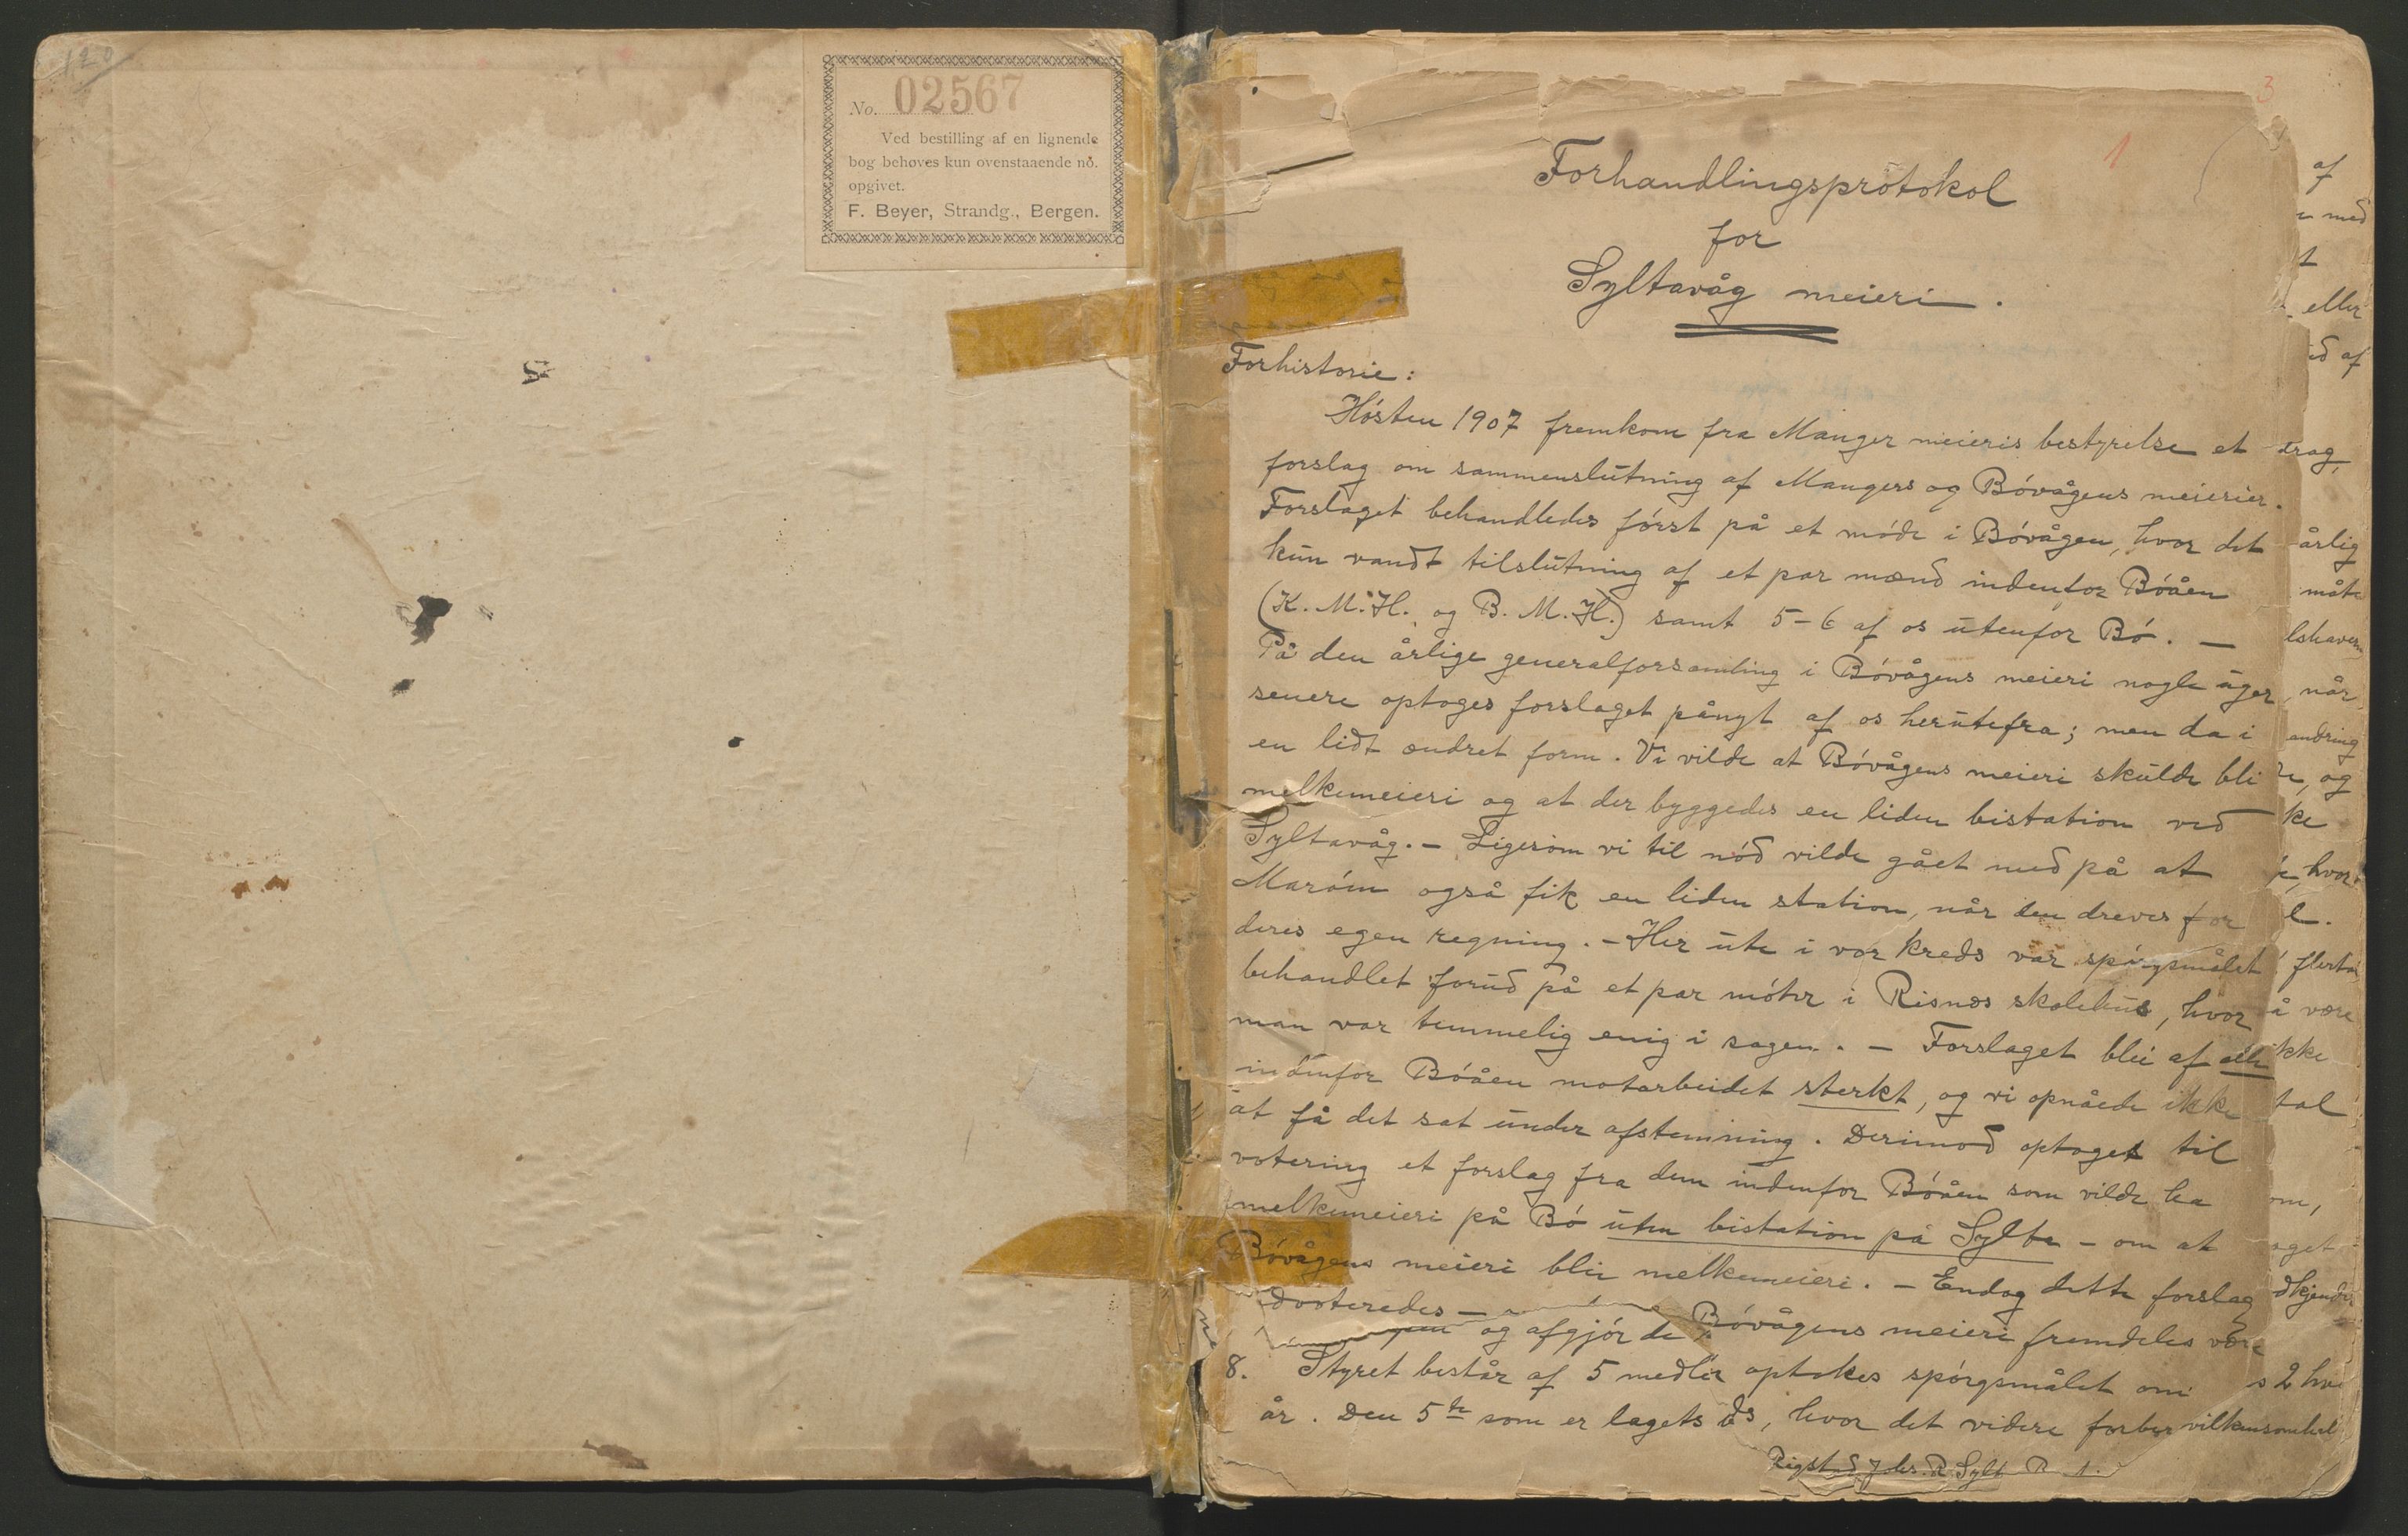 120
No. 02567
Ved bestilling af en lignende
bog behøves kun ovenstaaende no.
opgivet.
F. Beyer, Strandg., Bergen.
3
1
Forhandlingsprotokol
for
Syltavåg meieri.
Forhistorie:
Hósten 1907 fremkom fra Manger meieris bestyrelse et
forslag om sammenslutning af Mangers og Bóvågens meierier.
Forslaget behandledes fórst på et móde i Bóvågen, hvor det
kun vandt tilslutning af et par mænd indenfor Bóåen
(K. M. H. og B. M. H.) samt 5-6 af os utenfor Bó. —
På den årlige generalforsamling i Bóvågens meieri nogle uger
senere optoges forslaget pånyt af os herutefra; men da i
en lidt ændret form. Vi vilde at Bóvågens meieri skulde bli
melkemeieri og at der byggedes en liden bistation ved
Syltavåg. — Ligesom vi til nód vilde gået med på at
Maróm også fik en liden station, når den dreves for
deres egen regning. — Her ute i vor kreds var spórgsmålet
behandlet forud på et par móter i Risnæs skolehus, hvor
man var temmelig enig i sagen. — Forslaget blei af alle
indenfor Bóåen motarbeidet sterkt, og vi opnåede ikke
at få det sat under afstemning. Derimod optoges til
votering et forslag fra dem indenfor Bóåen som vilde ha
melkemeieri på Bó uten bistation på Sylte — om at
Bóvågens meieri blir melkemeieri. — Endog dette forslag
dvoteredes —
og afgjór de Bóvågens meieri fremdeles være
8. Styret består af 5 medle optokes spórgsmålet om
år. Den 5te som er lagets ds, hvor det videre forber
Rigstad Johs. R. Sylt
af
med
t
eller
ed af
drag,
årlig
måte
lshaver
når
andring
e, og
ke
hvor
l.
flertal
å være
ikke
tal
om,
oget
dkjendes
s 2 hve